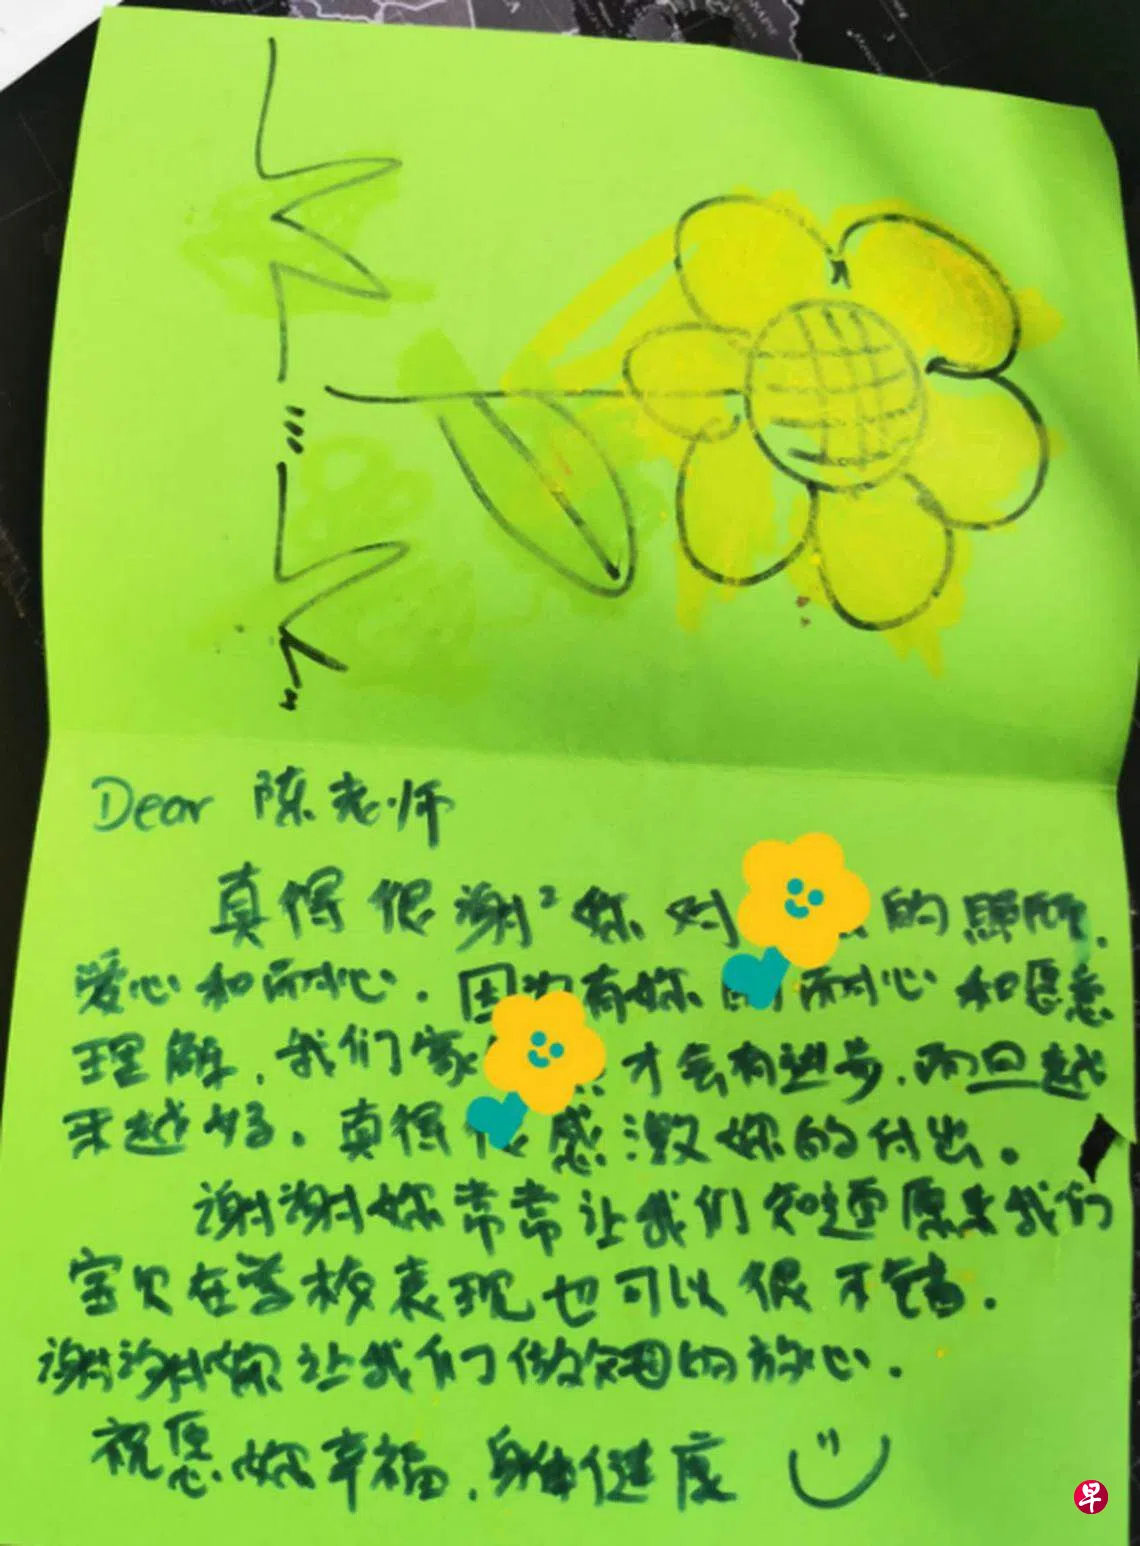 Dear 陈老师
真得很谢²妳对 的照顾，
爱心和耐心．因为有妳的耐心和愿意
理解，我们家 才会有进步，而且越
来越好．真得很感激妳的付出。
谢谢妳常常让我们知道原来我们
宝贝在学校表现也可以很不错．
谢谢妳让我们做父母的放心．
祝愿妳幸福，身体健康
早